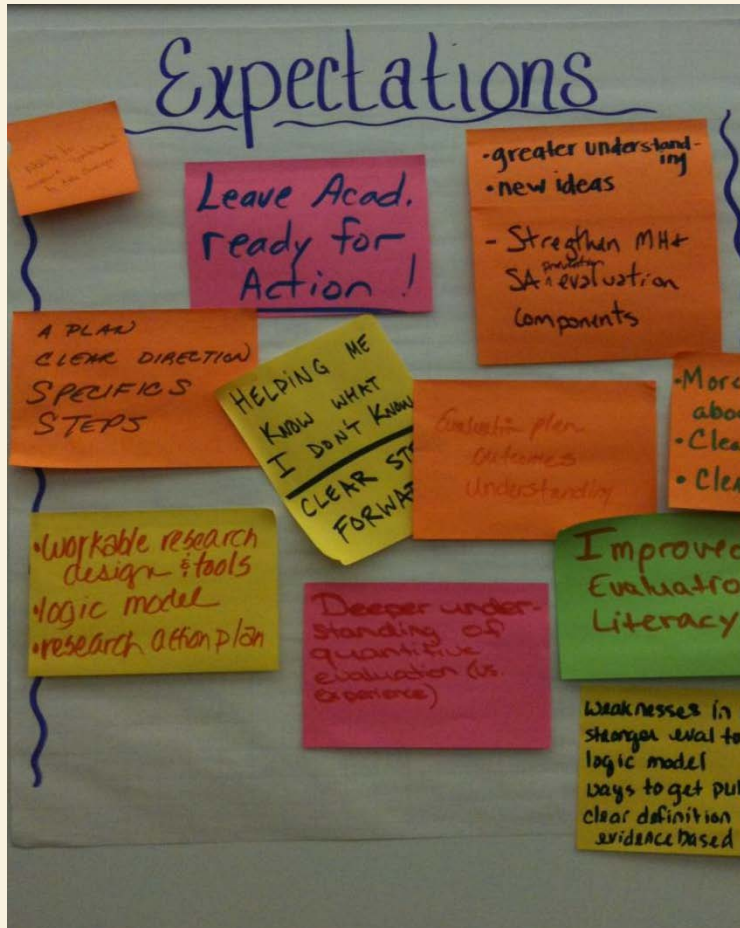 Expectations
Leave Acad.
ready for
Action !
•greater understand-
ing
•new ideas
- Stregthen MH+
prevention
SA ^ evaluation
components
A PLAN
CLEAR DIRECTION
SPECIFICS
STEPS
HELPING ME
KNOW WHAT
I DON'T KNOW
CLEAR ST
FORWA
Evaluation plan
Outcomes
Understanding
•More
abo
•Clea
•Clea
•Workable research
design & tools
•logic model
•research action plan
Deeper under-
standing of
quantitive
evaluation (vs.
experience)
Improved
Evaluatio
Literacy
Weaknesses in
stronger eval to
logic model
ways to get pu
clear definition
evidence based